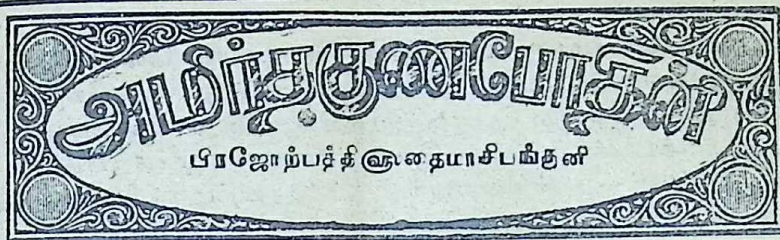 அமிர்தகுணபோதினி
பிரஜோற்பத்தி௵ தைமாசிபங்குனி